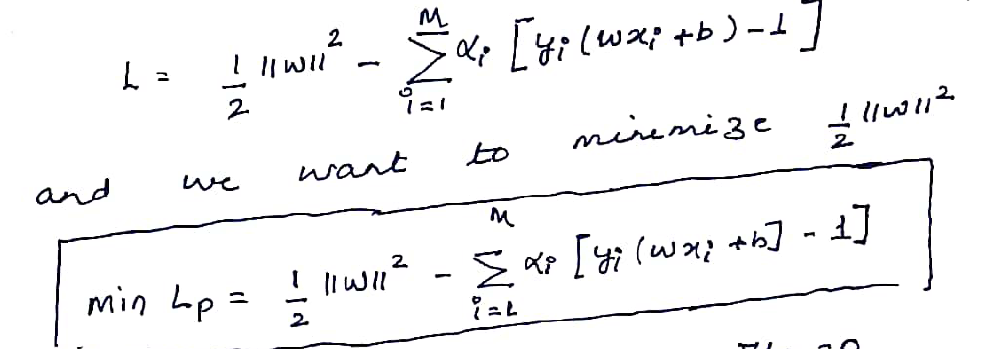 L = 1/2 ||w||² - M∑i=1 αi [yi(wxi +b)-1]
and we want to minimize 1/2 ||w||²
min Lp = 1/2 ||w||² - M∑i=1 αi [yi(wxi +b] - 1]